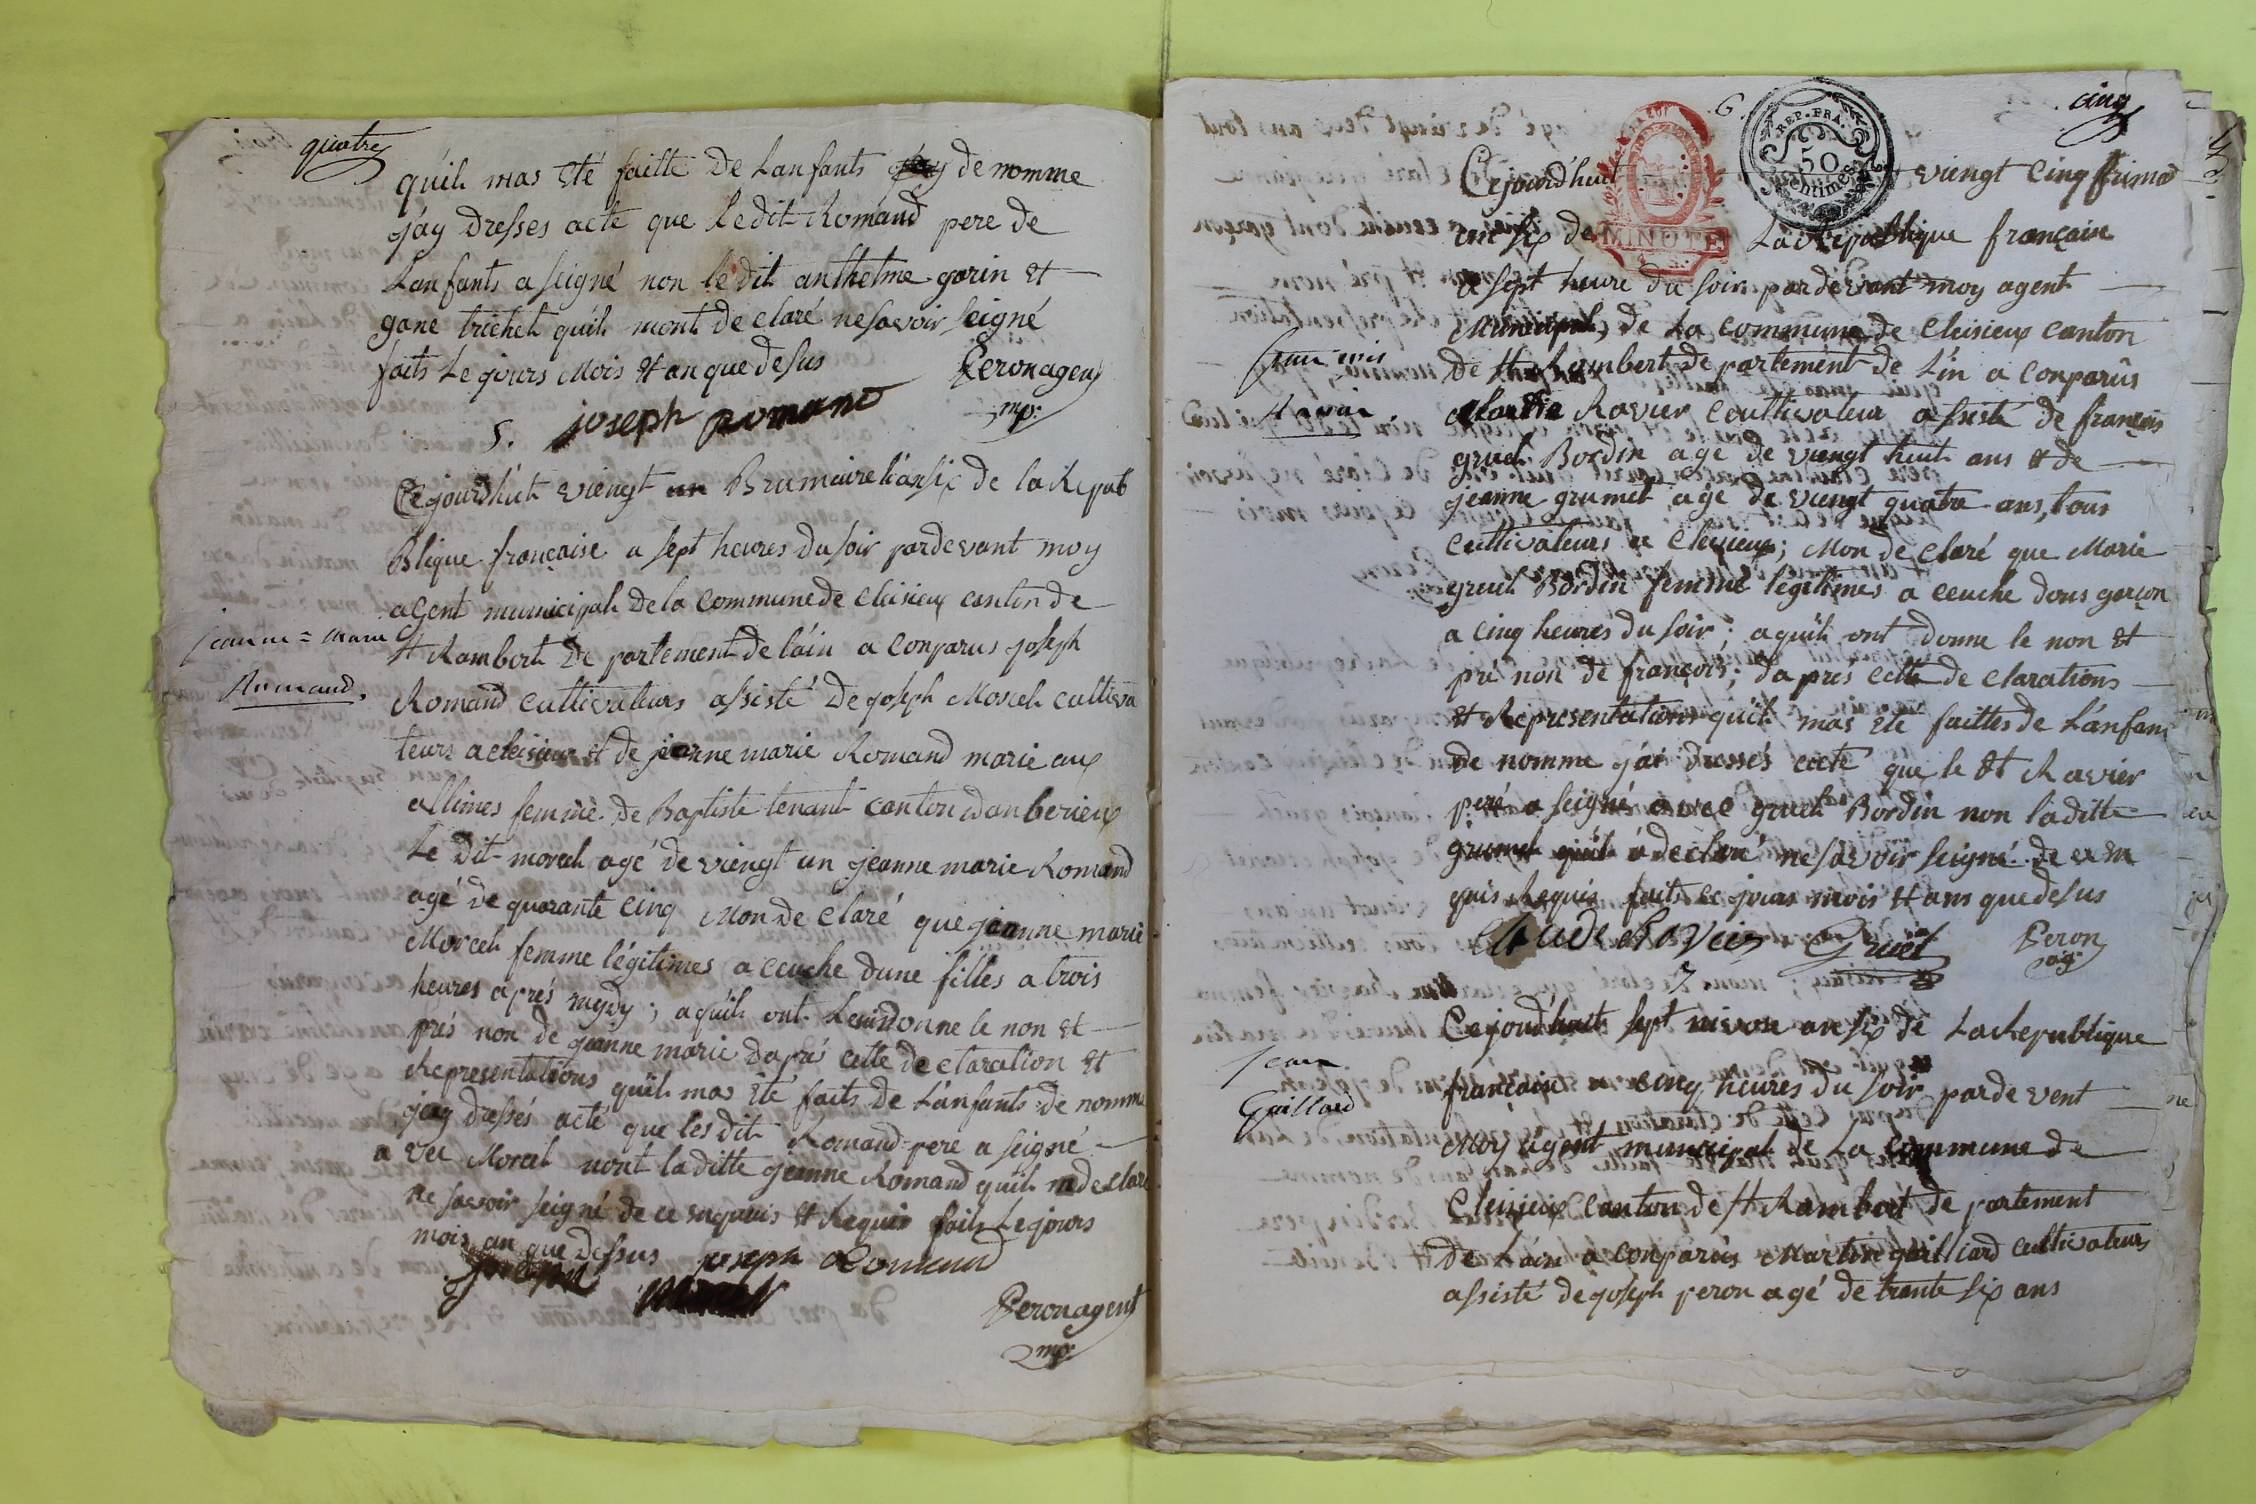 quatre
qu'il mas Eté faitte De Lanfants de nomme
j'ay Dresses acte que Ledit Romand pere de
Lanfants a seigné non le dit anthelme garin et
gane trichet qu'il mont de claré nesavoir seigné
faits Le jours Mois et an que desus
Peronagent
mp:
joseph romand
5.
Cejourd'huit viengt un Brumaire l'ansix de la Repub
Blique française a sept heures Du soir pardevant moy
agent municipal de la commune de cleisieux canton de
St Rambert De partement de l'ain a conparus joseph
jeanne = marie
Romand.
Romand cultivateurs assisté De joseph Morcel cultiva
teurs a cleisieux et de jeanne marie Romand marie aux
allimes femme de Baptiste tenant canton danberieux
Le Dit morcel agé de viengt un jeanne marie Romand
agé De quarante cinq Mon de claré que jeanne marie
Morcel femme légitimes a ceuche dune filles a trois
heures après mydy ; aquil ont Leuirdonne le non et
prés non de jeanne marie Daprés cette de claration et
Representations quil mas Eté faits de L'anfants de nomme
jay dressés acté que les dit Romand pere a seigné
a vec Morcel nont laditte jeanne Romand quil mdeclare
ne savoir seigné de ce enquis et Requis fait Le jours
mois an que Dessus joseph Romand
joseph morcel
Peronagent
mp:
cinq
6.
REP. FRA.
50
Centimes
LA LOI
MINUTE
Cejourd'huit viengt cinq frimad
an six de La Republique française
a sept heure du soir pardevant moy agent
Municipal, de La commune de Cleisieux canton
De St Rambert De partement de L'in a conparûs
francois
Ravier.
claude Ravier coultivateur assisté de françois
gruel Bordin agé de viengt huit ans et de
jeanne grumet agé de viengt quatre ans, tous
cultivateurs a Cleisieux; Mon de claré que Marie
gruel Bordin femme légitimes a ceuche dons garçon
a cinq heures du soir ; aquil ont donne le non et
pré non de françois ; daprés cette de clarations
et Representations quil mas Eté faittes de L'anfans
de nomme jai dressés acté que le dt Ravier
peré a seigné avec gruel Bordin non laditte
grumet quil a declaré ne savoir seigné de ce en
quis Requis faits ce jours mois et ans que desus
claude Ravier Gruel Peron
ag:
7
Cejourd'huit sept nivose an six de La Republique
jean
Guillard
française a cinq heures du soir par de vent
Moy agent municipal de La commune de
Cleisieux canton de St Rambert de partement
De Lain a conparus Martin guilliard cultivateurs
assisté de joseph peron agé de trante six ans